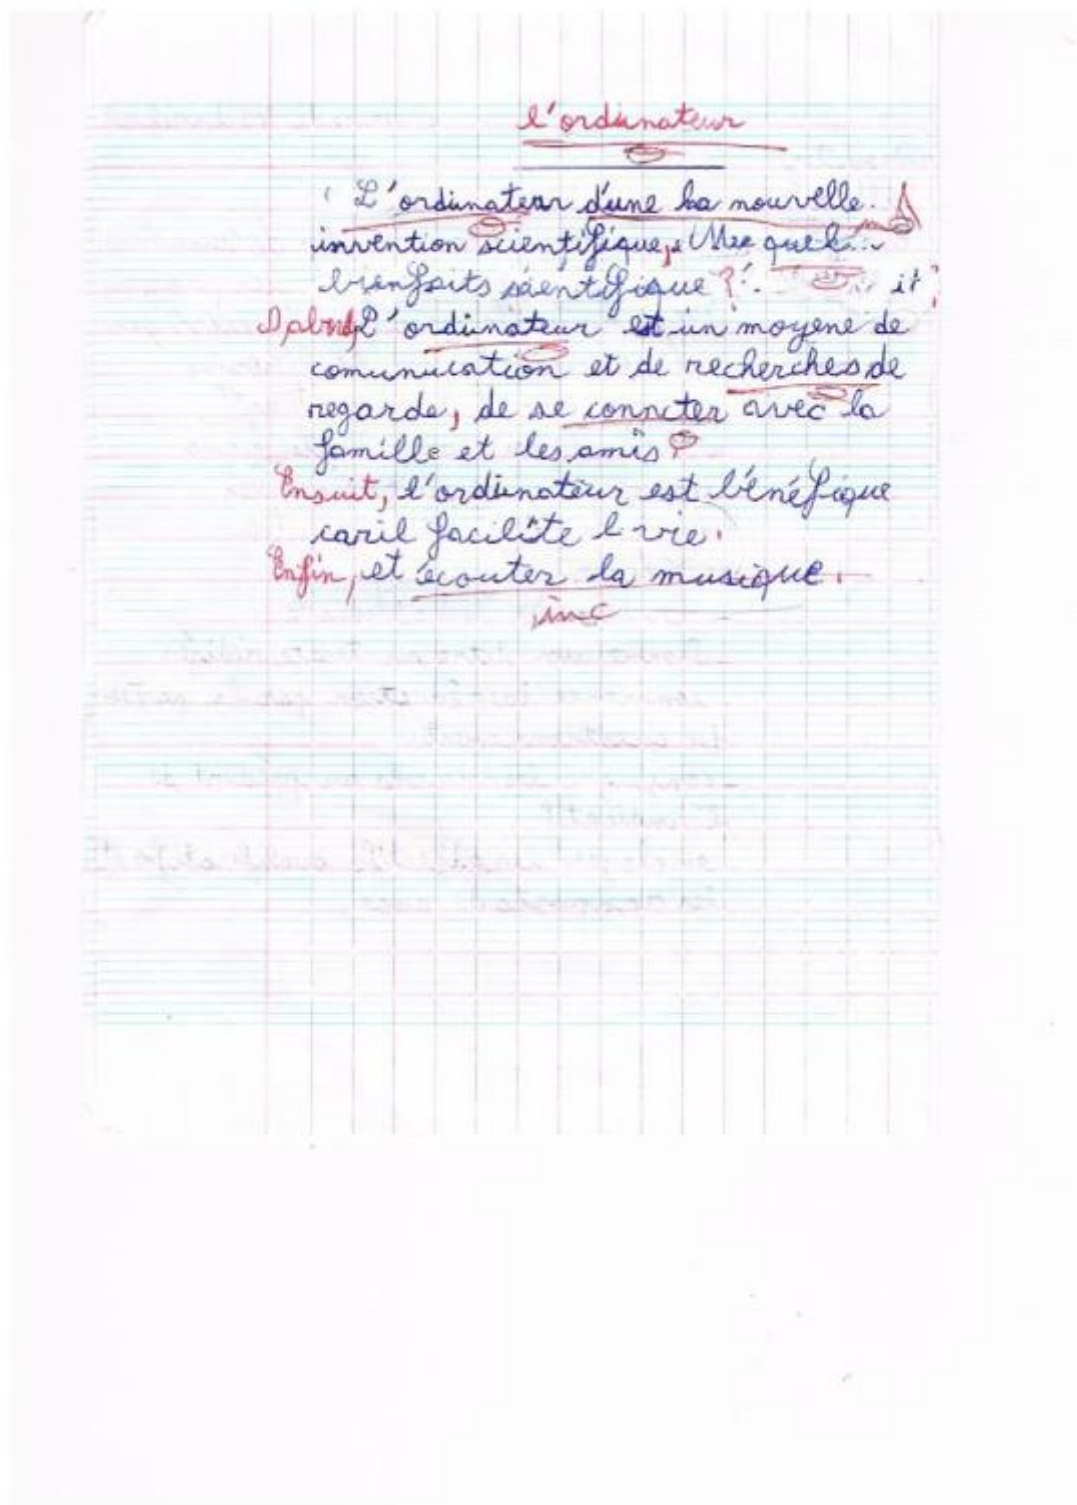 l'ordinateur
L'ordinateur d'une la nouvelle
invention scientifique, Mes quel
bienfaits scientifique ?
D'abrd, L'ordinateur est un moyene de
comunication et de recherches de
regarde, de se conncter avec la
famille et les amis
Ensuit, l'ordinateur est bénéfique
caril facilite l vie.
Enfin, et écouter la musique.
inc